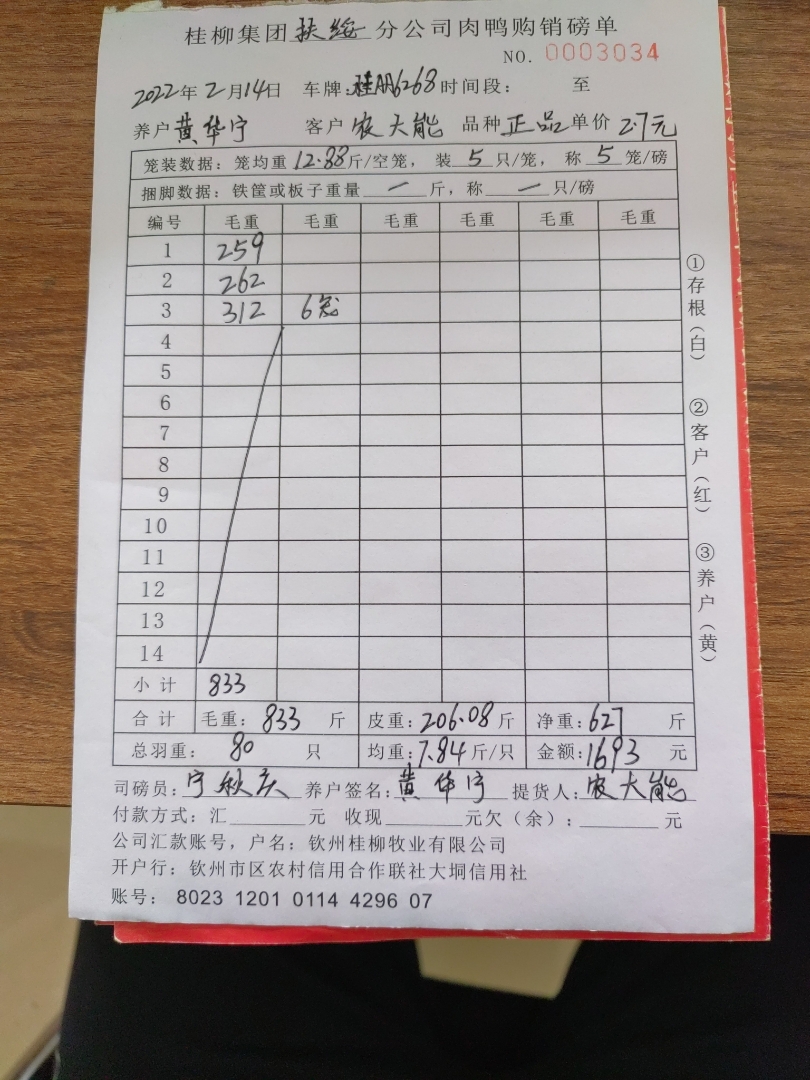 桂柳集团扶绥分公司肉鸭购销磅单
NO. 0003034
2022年2月14日 车牌:桂 6268 时间段: 至
养户黄华宁 客户农大能 品种正品 单价2.7元
笼装数据: 笼均重12.88斤/空笼, 装5只/笼, 称5笼/磅
捆脚数据: 铁筐或板子重量一斤, 称一只/磅
编号 毛重 毛重 毛重 毛重 毛重 毛重
1 259
2 262
3 312 6笼
4
5
6
7
8
9
10
11
12
13
14
小计 833
合计 毛重: 833 斤 皮重: 206.08 斤 净重: 627 斤
总羽重: 80 只 均重: 7.84 斤/只 金额: 1693 元
司磅员: 宁秋庆 养户签名: 黄华宁 提货人: 农大能
付款方式: 汇 元 收现 元欠(余): 元
公司汇款账号, 户名: 钦州桂柳牧业有限公司
开户行: 钦州市区农村信用合作联社大垌信用社
账号: 8023 1201 0114 4296 07
①存根(白) ②客户(红) ③养户(黄)